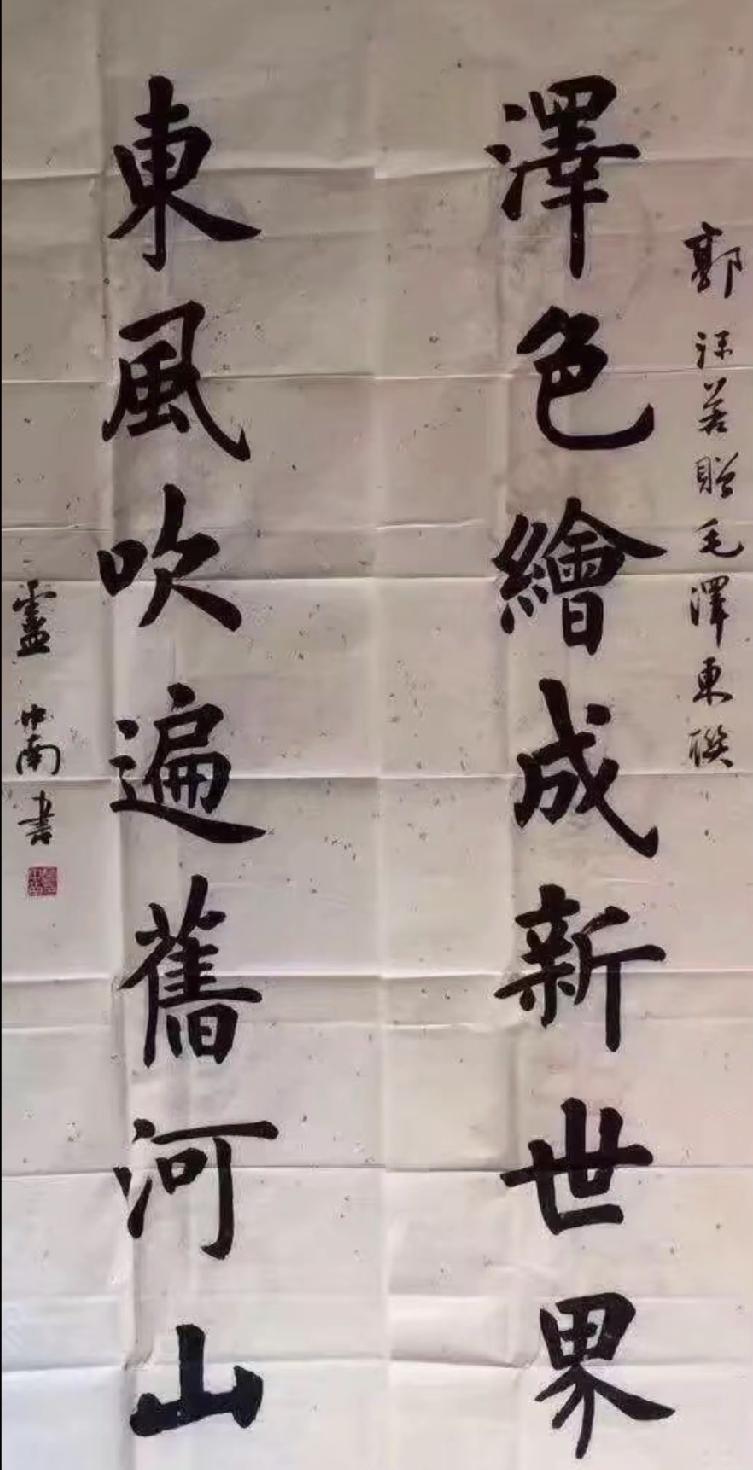 郭沫若贈毛澤東聯
澤色繪成新世界
東風吹遍舊河山
盧中南書